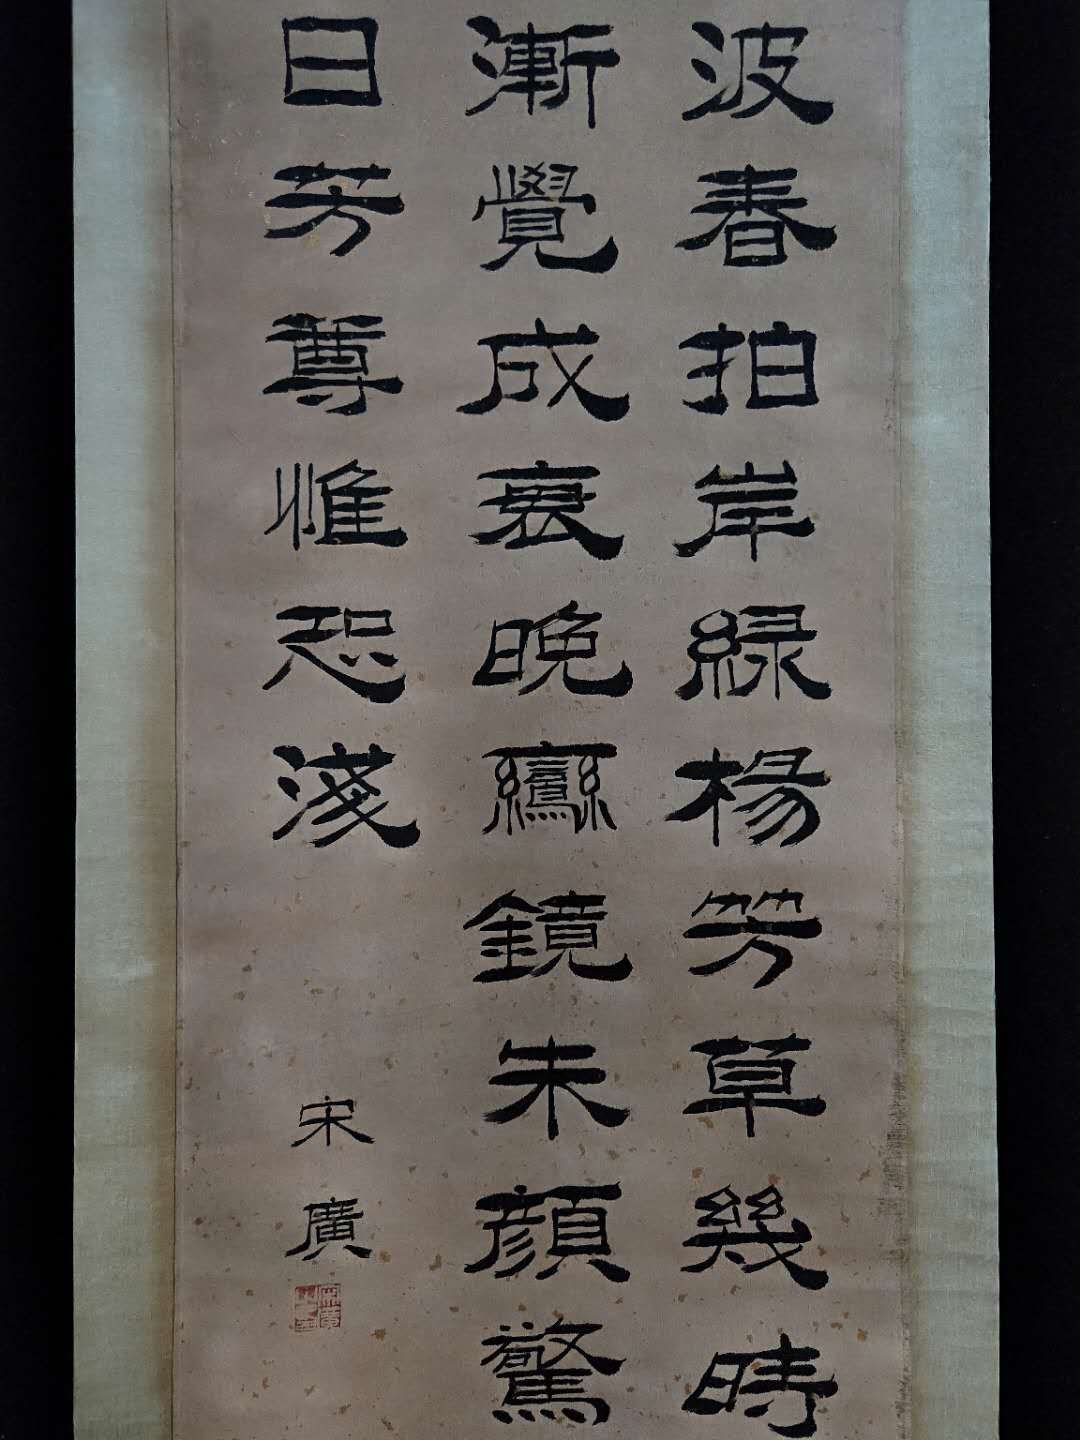 波春拍岸緑楊芳草幾時
漸覺成衰晚鸞鏡朱顏驚
日芳尊惟恐淺
宋廣